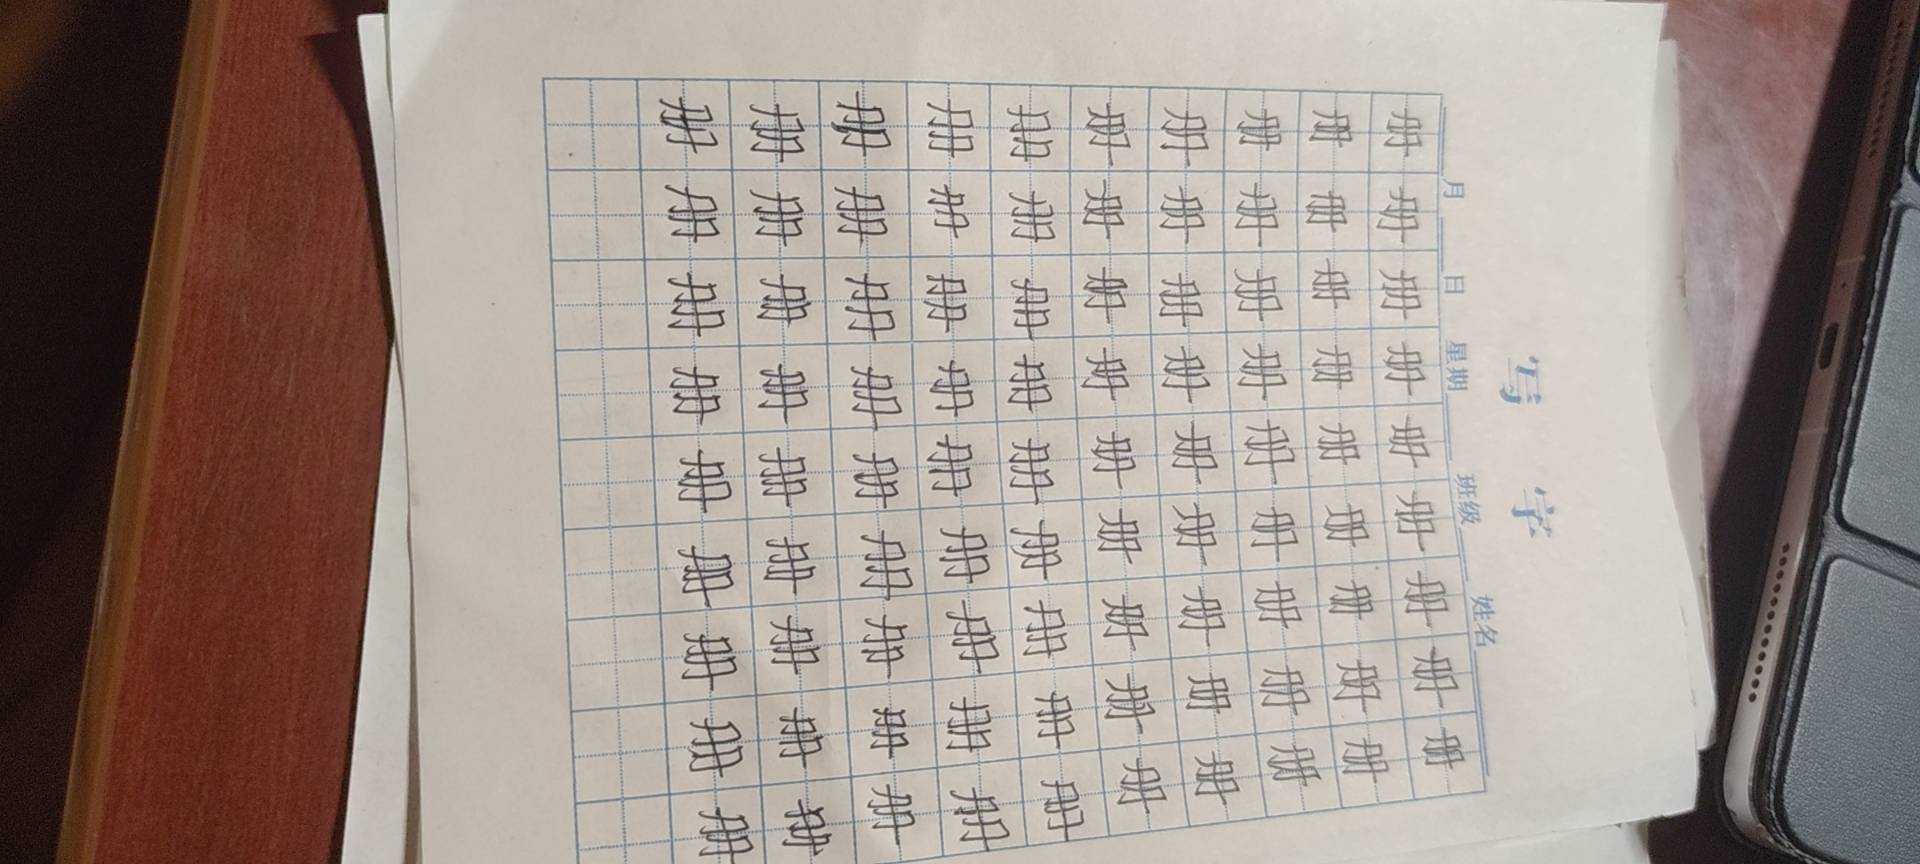 写字
月 日 星期 班级 姓名
册册册册册册册册册
册册册册册册册册册
册册册册册册册册册
册册册册册册册册册
册册册册册册册册册
册册册册册册册册册
册册册册册册册册册
册册册册册册册册册
册册册册册册册册册
册册册册册册册册册